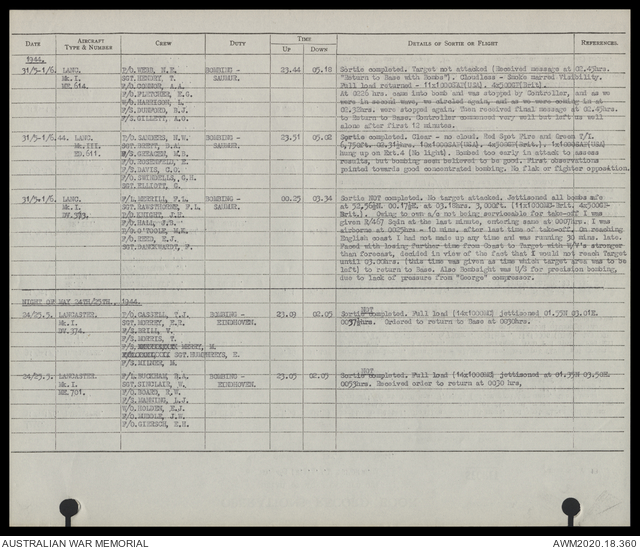 DATE AIRCRAFT TYPE & NUMBER CREW DUTY TIME UP DOWN DETAILS OF SORTIE OR FLIGHT REFERENCES.
1944.
31/5-1/6. LANC. BOMBING - 23.44 05.18 Sortie completed. Target not attacked (Received message at 02.45hrs.
Mk.I. SGT. HENDRY, T. SAUMUR. "Return to Base with Bombs"). Cloudless - Smoke marred Visibility.
ME.614. F/O. CONNOR, A.A. Full load returned - 11x1000GAP(USA). 4x500GP(Brit).
F/O. FLETCHER, At 0226 hrs. came into bomb and was stopped by Controller, and as we
W/O. HARRISON, L. were in second wave, we circled again, and as we were coming in at
02.32hrs. were stopped again. Then received final message at 02.45hrs.
F/S. GILLETT, A.O. to Return to Base. Controller commenced very well but left us well
alone after first 12 minutes.
31/5-1/6.44. LANC. P/O. SANDERS, H.W. BOMBING - 23.51 05.02 Sortie completed. Clear - no cloud. Red Spot Fire and Green T/I.
Mk.III. SAUMUR. 6,750ft. 02.31½hrs. 10x1000GAP(USA). 4x500GP(Brit). 1x1000GAP(USA)
ED.611. hung up on Ext.4 (No light). Bombed too early in attack to assess
results, but bombing seen believed to be good. First observations
F/S. DAVIS, C.O. pointed towards good concentrated bombing. No flak or fighter opposition.
SGT. ELLIOTT, G.
31/5-1/6. LANC. F/L. MERRILL, F.L. BOMBING - 00.25 03.34 Sortie NOT completed. No target attacked. Jettisoned all bombs safe
Mk.I. SGT. HAWTHORNE, F.L. SAUMUR. at 03.18hrs. 3,000ft.
P/O. KNIGHT, J.H. Owing to own a/c not being serviceable for take-off I was
F/S. HALL, J.B. given R/467 Sqdn at the last minute, entering same at 0007hrs. I was
F/S. O'TOOLE, M.K. airborne at 0025hrs - 10 mins. after last time of take-off. On reaching
F/O. REED, K.J. English coast I had not made up any time and was running 30 mins. late.
Faced with losing further time from Coast to Target with W/V's stronger
than forecast, decided in view of the fact that I would not reach Target
until 03.00hrs. (this time was given as time which target area was to be
left) to return to Base. Also Bombsight was U/S for precision bombing,
due to lack of pressure from "George" compressor.
NIGHT OF MAY 24TH/25TH. 1944.
NOT
24/25.5. LANCASTER. P/O. CASSELL, T.J. BOMBING - 23.09 02.05 Sortie completed. Full load (14x1000MC) jettisoned 01.55N 03.01E.
Mk.I. EINDHOVEN. 0037½hrs. Ordered to return to Base at 0030hrs.
DV.374. F/S. BRILL, W.
F/S. MORRIS, T.
SGT. HUMPHRYS, H.
F/S. MILNER, M.
NOT
24/25.5. LANCASTER. BOMBING - 23.03 02.03 Sortie completed. Full load (14x1000MC) jettisoned at 01.35N 03.50E.
Mk.I. SGT. SINCLAIR, W. EINDHOVEN. 0033hrs. Received order to return at 0030 hrs,
ME.701. F/O. BOARD, R.W.
F/S. MANNING, L.J.
W/O. HOLDEN, E.J.
AUSTRALIAN WAR MEMORIAL AWM2020.18.360